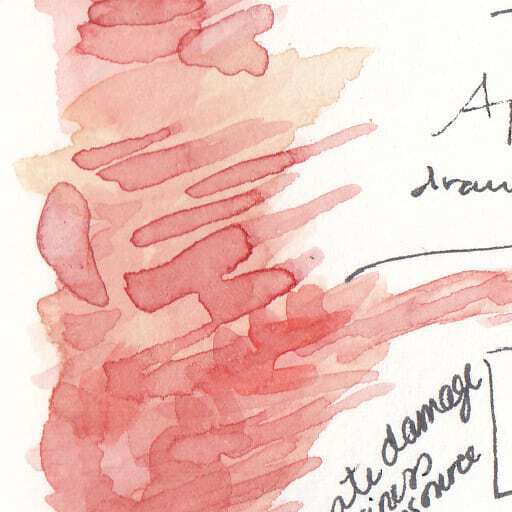 Ap
draw
ate damage
iness
source